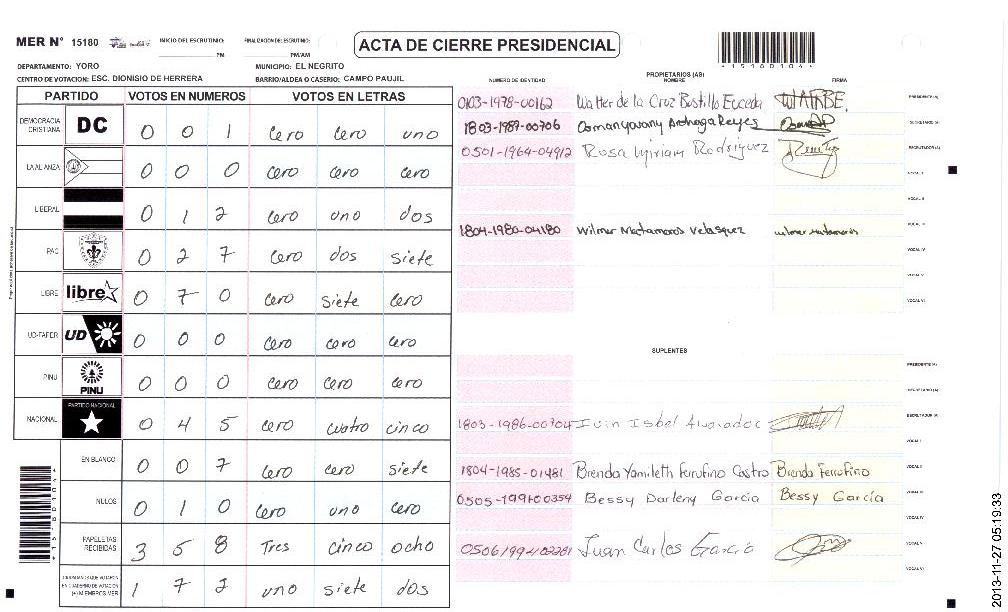 MER N° 15180 INICIO DEL ESCRUTINIO: PM FINALIZACION DE ESCRUTINIO: PM/AM
ACTA DE CIERRE PRESIDENCIAL
DEPARTAMENTO: YORO MUNICIPIO: EL NEGRITO
CENTRO DE VOTACION: ESC. DIONISIO DE HERRERA BARRIO/ALDEA O CASERIO: CAMPO PAUJIL
PARTIDO VOTOS EN NUMEROS VOTOS EN LETRAS
DEMOCRACIA CRISTIANA DC 0 0 1 Cero Cero uno
LA ALIANZA 0 0 0 Cero Cero Cero
LIBERAL 0 1 2 Cero uno dos
PAC 0 2 7 Cero dos siete
LIBRE libre 0 7 0 Cero siete Cero
UD-FAPER UD 0 0 0 Cero Cero Cero
PINU PINU 0 0 0 Cero Cero Cero
NACIONAL PARTIDO NACIONAL 0 4 5 Cero cuatro cinco
EN BLANCO 0 0 7 Cero Cero siete
NULOS 0 1 0 Cero uno Cero
PAPELETAS RECIBIDAS 3 5 8 Tres Cinco ocho
CIUDADANOS QUE VOTARON EN CUADERNO DE VOTACION (+) MIEMBROS MER 1 7 2 uno siete dos
NUMERO DE IDENTIDAD PROPIETARIOS (AS) NOMBRE FIRMA
0103-1978-00162 Walter de la Cruz Bustillo Euceda WARBE. PRESIDENTE (A)
1803-1987-00706 Osman Yovany Arteaga Reyes SECRETARIO (A)
0501-1964-04912 Rosa Myriam Rodriguez ESCRUTADOR (A)
VOCAL I
VOCAL II
1804-1980-04180 Wilmer Matamoros Velasquez wilmer Matamoros VOCAL III
VOCAL IV
VOCAL V
VOCAL VI
SUPLENTES
PRESIDENTE (A)
SECRETARIO (A)
1803-1986-00704 Juan Isbel Alvarado ESCRUTADOR (A)
VOCAL I
1804-1985-01481 Brenda Yamileth Ferrufino Castro Brenda Ferrufino VOCAL II
0505-1991-00354 Bessy Darleny Garcia Bessy Garcia VOCAL III
VOCAL IV
Juan Carlos Garcia VOCAL V
VOCAL VI
2013-11-27 05:19:33